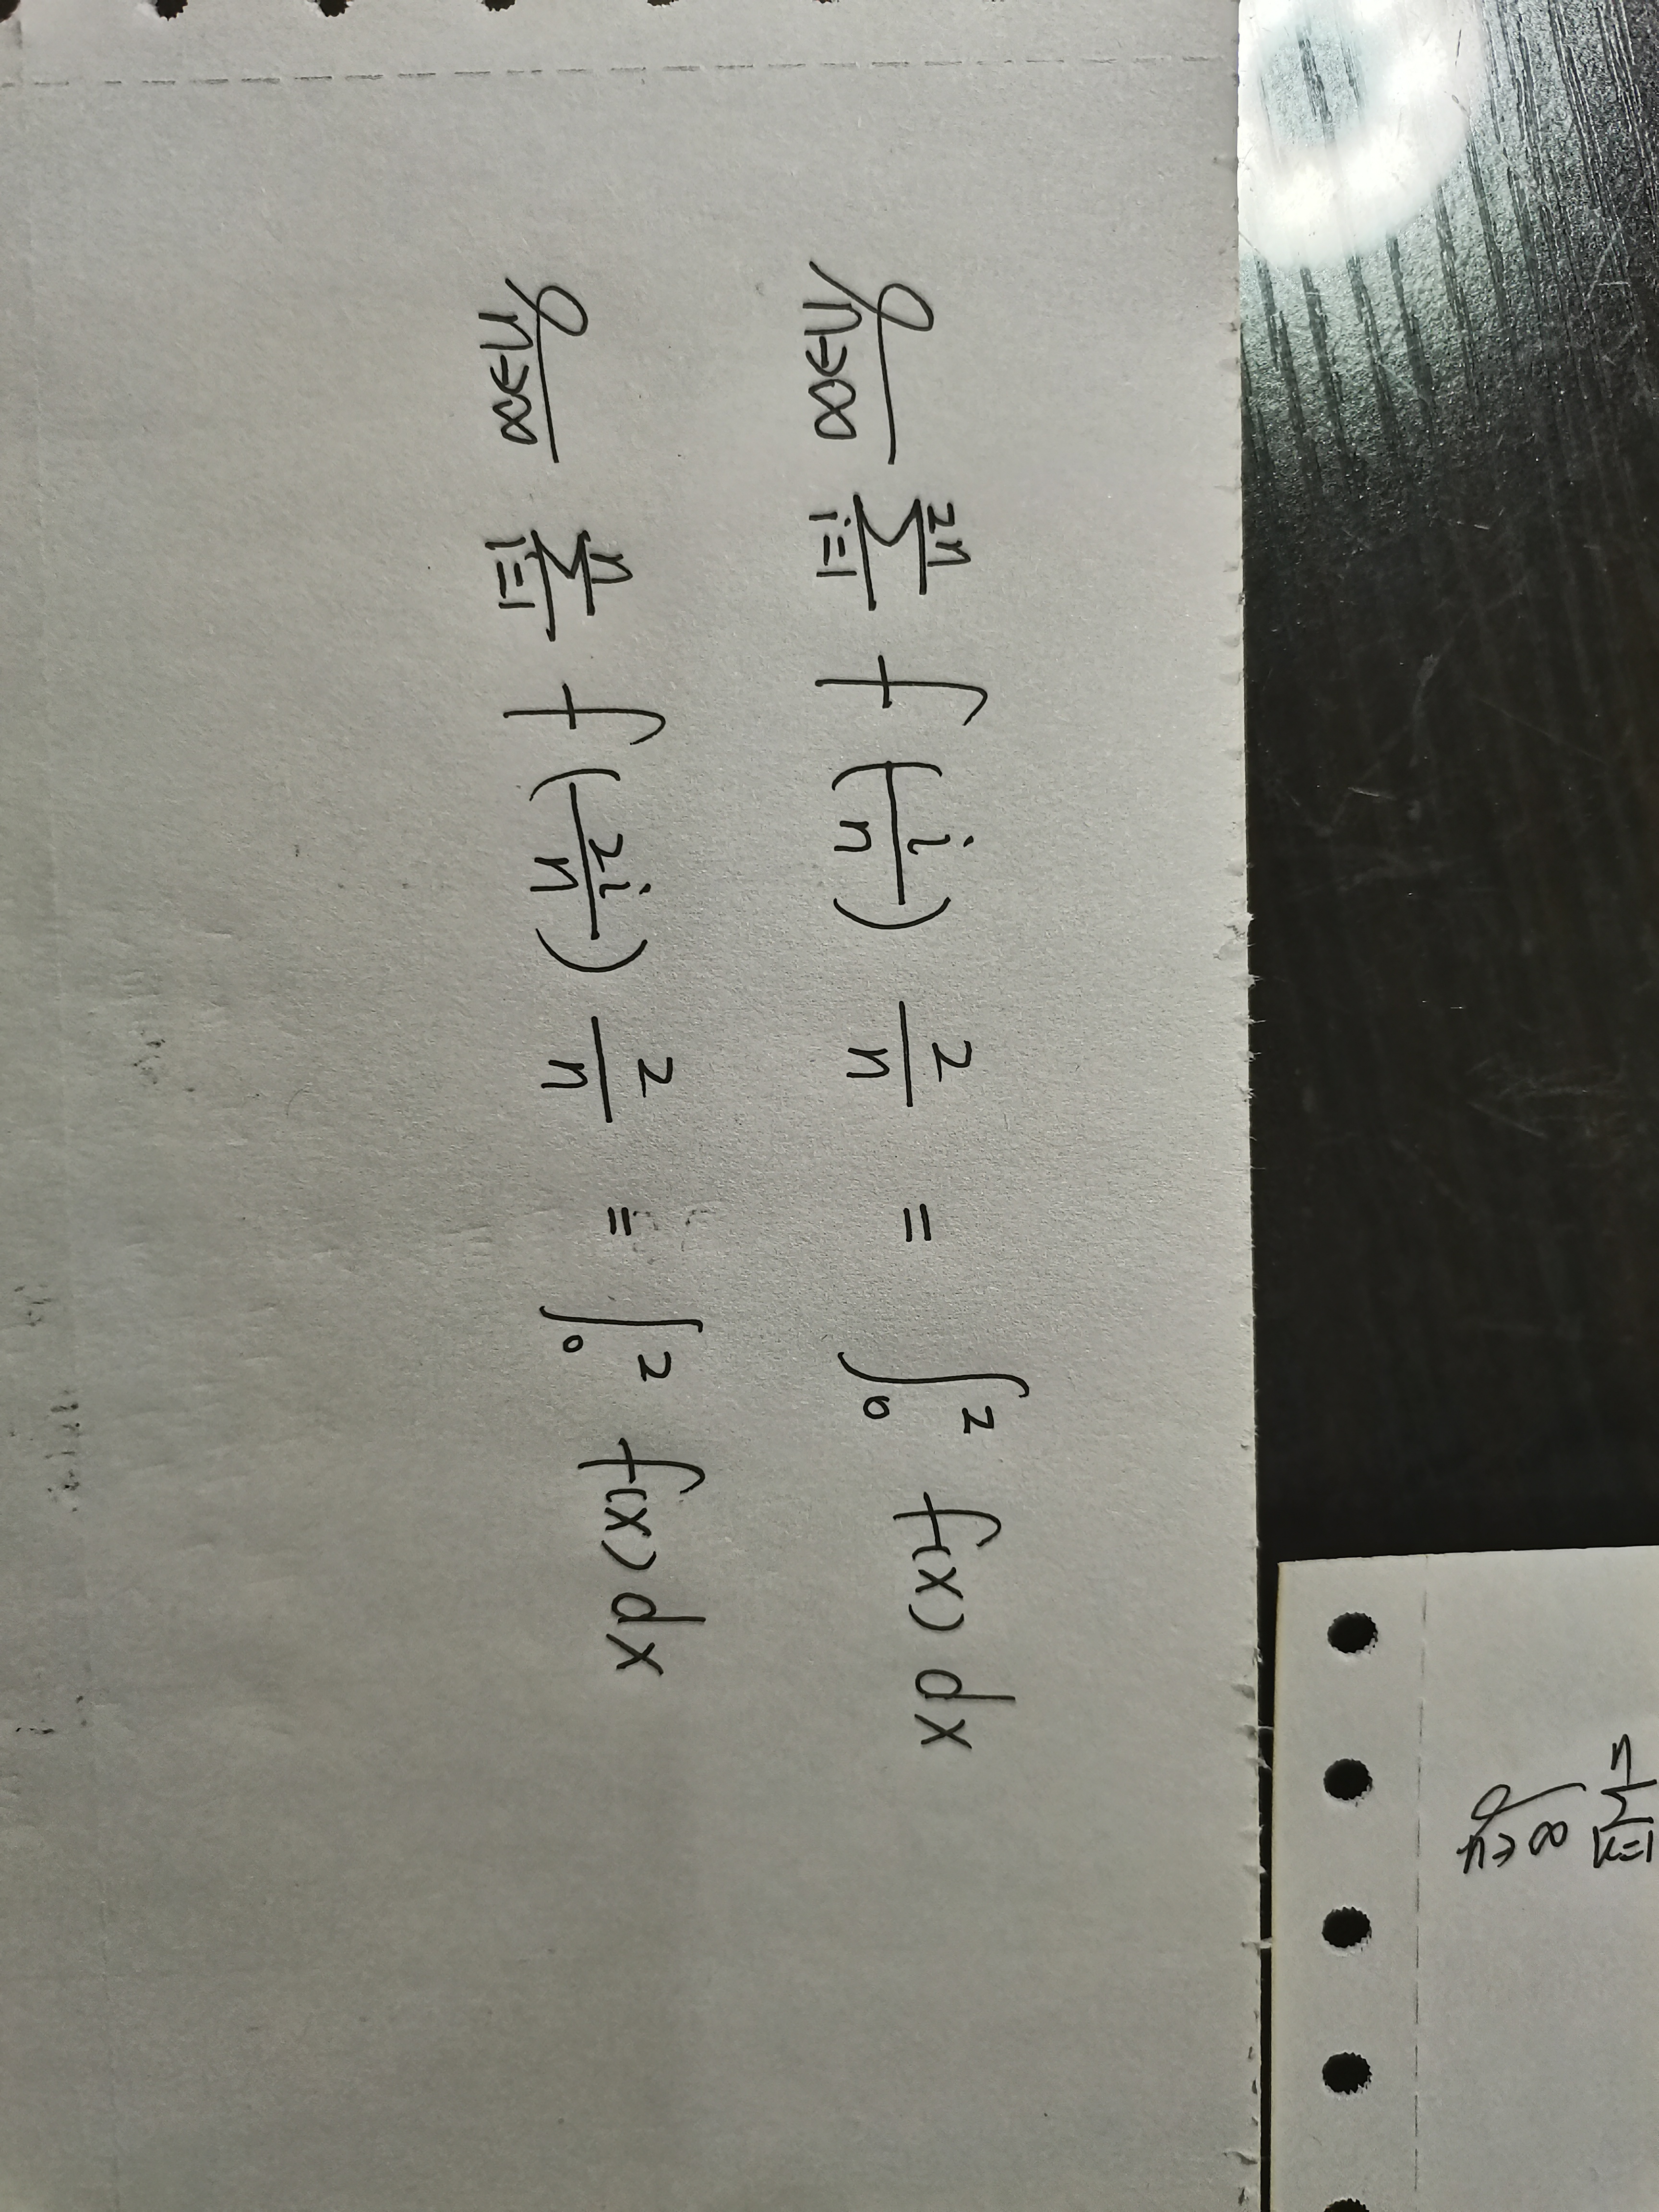 lim_{n→∞} \sum_{i=1}^{2n} f(\frac{i}{n}) \frac{2}{n} = \int_0^2 f(x) dx
lim_{n→∞} \sum_{i=1}^{n} f(\frac{2i}{n}) \frac{2}{n} = \int_0^2 f(x) dx
lim_{n→∞} \sum_{k=1}^{n}